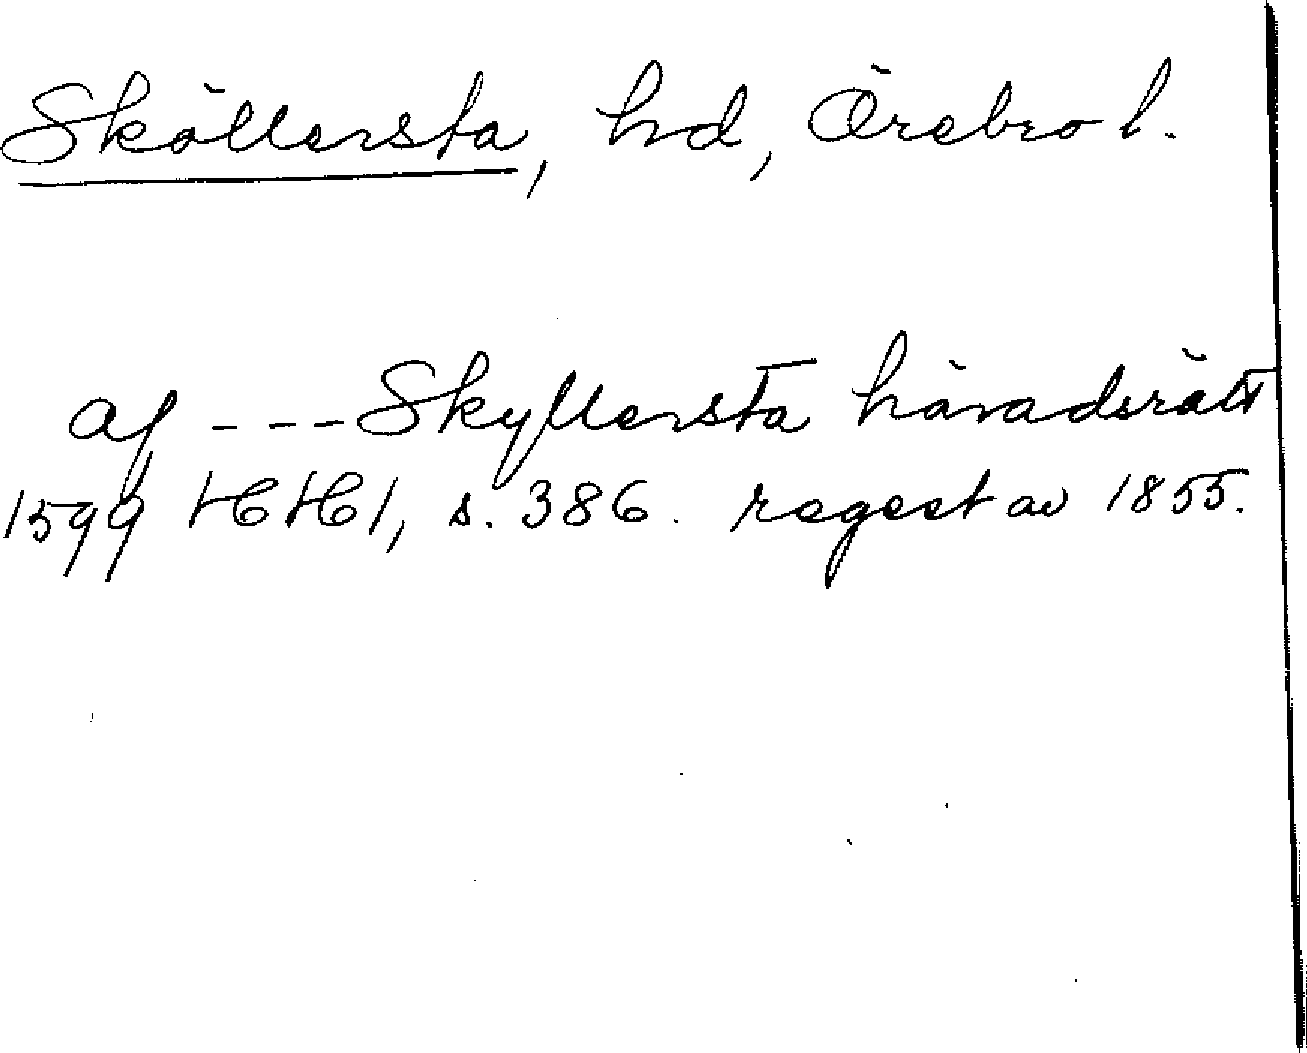 Sköllersta, hd, Örebro l.
af --- Skyllersta häradsrätt
1599 HH 1, s. 386. regest av 1855.